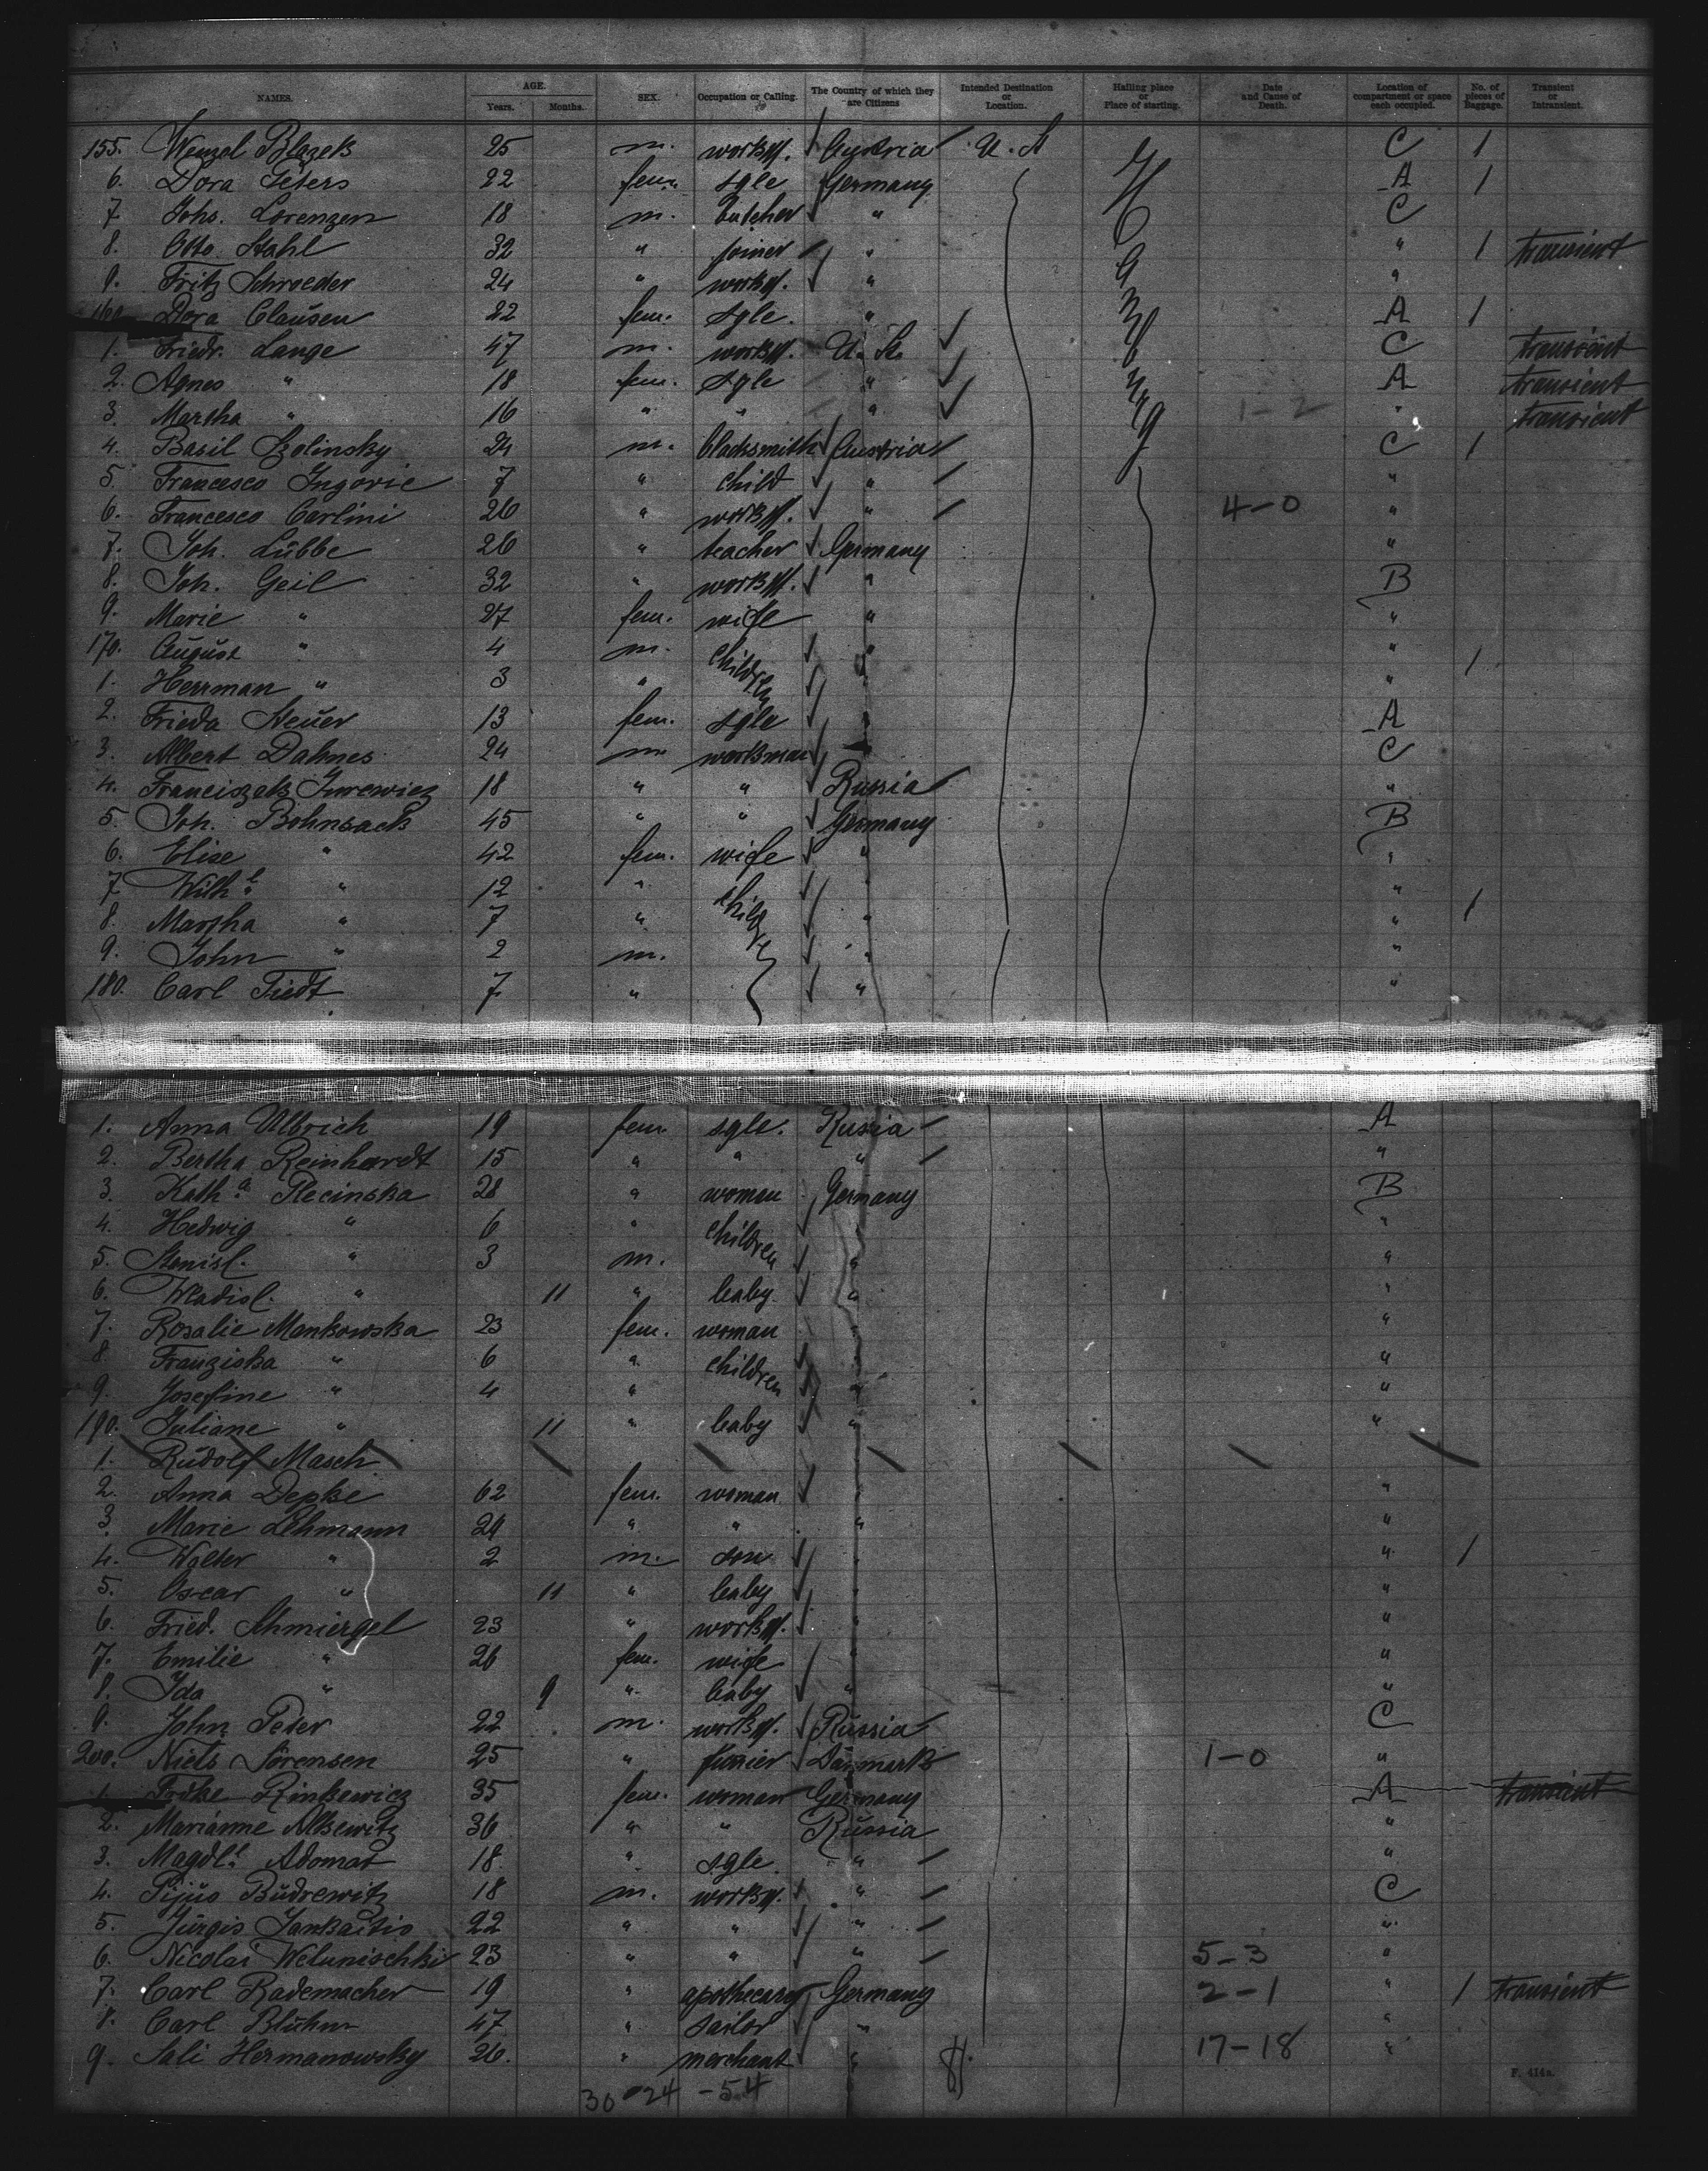 NAMES. AGE. Years. Months. SEX. Occupation or Calling. The Country of which they are Citizens Intended Destination or Location. Hailing place or Place of starting. Date and Cause of Death. Location of compartment or space each occupied. No. of pieces of Baggage. Transient or Intransient.
155. Wenzel Blazek 25 m. workm. Austria U. St C 1
6. Dora Peters 22 fem. sgle Germany A 1
7. Johs. Lorenzen 18 m. butcher " C
8. Otto Stahl 32 " joiner " " 1 transient
9. Fritz Schroeder 24 " workm. " "
160. Dora Clausen 22 fem. sgle. " A 1
1. Friedr. Lange 47 m. workm. U. St. C transient
2. Agnes " 18 fem. sgle " A transient
3. Martha " 16 " " " 1-2 " transient
4. Basil Szolinsky 24 m. blacksmith Austria C 1
5. Francesco Ingovic 7 " child " "
6. Francesco Carlini 26 " workm. " 4-0 "
7. Joh. Lübbe 26 " teacher Germany "
8. Joh. Geil 32 " workm. " B
9. Marie " 27 fem. wife " "
170. August " 4 m. children " " 1
1. Herrman " 3 " "
2. Frieda Steuer 13 fem. sgle " A
3. Albert Dahnes 24 m workman C
4. Franciszek Jurewicz 18 " " Russia "
5. Joh. Bohnsack 45 " " Germany B
6. Elise " 42 fem. wife " "
7. Wilh. " 12 " child " "
8. Martha " 7 " " " 1
9. John " 2 m. " "
180. Carl Tiedt 7 " " "
1. Anna Ulbrich 19 fem. sgle. Rusia A
2. Bertha Reinhardt 15 " " " "
3. Kath.a Plecinska 28 " woman Germany B
4. Hedwig " 6 " children " "
5. Stanisl. " 3 m. " "
6. Wladisl. " 11 " baby " "
7. Rosalie Mankowska 23 fem. woman " "
8. Franziska " 6 " children " "
9. Josefine " 4 " " "
190. Juliane " 11 " baby " "
1. Rudolf Masch
2. Anna Depke 62 fem. woman "
3. Marie Lehmann 29 " " " "
4. Walter " 2 m. son " " 1
5. Oscar " 11 " baby " "
6. Fried. Schmiergel 23 " workm. " "
7. Emilie " 26 fem. wife " "
8. Ida " 9 " baby " "
9. John Peter 22 m. workm. Russia C
200. Niels Sörensen 25 " Danmark 1-0 "
1. Rinkewicz 35 fem. woman Germany A transient
2. Marianne Alksewitz 36 " " Russia "
3. Magdl. Adomat 18 " sgle. " "
4. Pijus Budrewitz 18 m. workm. " C
5. Jurgis Jankaitis 22 " " " "
6. Nicolai Welunischki 23 " " " 5-3 "
7. Carl Rademacher 19 " apothecary Germany 2-1 " 1 transient
8. Carl Bluhm 47 " sailor " "
9. Sali Hermanowsky 26. " merchant " 17-18 "
30 24 -54
F. 414a.